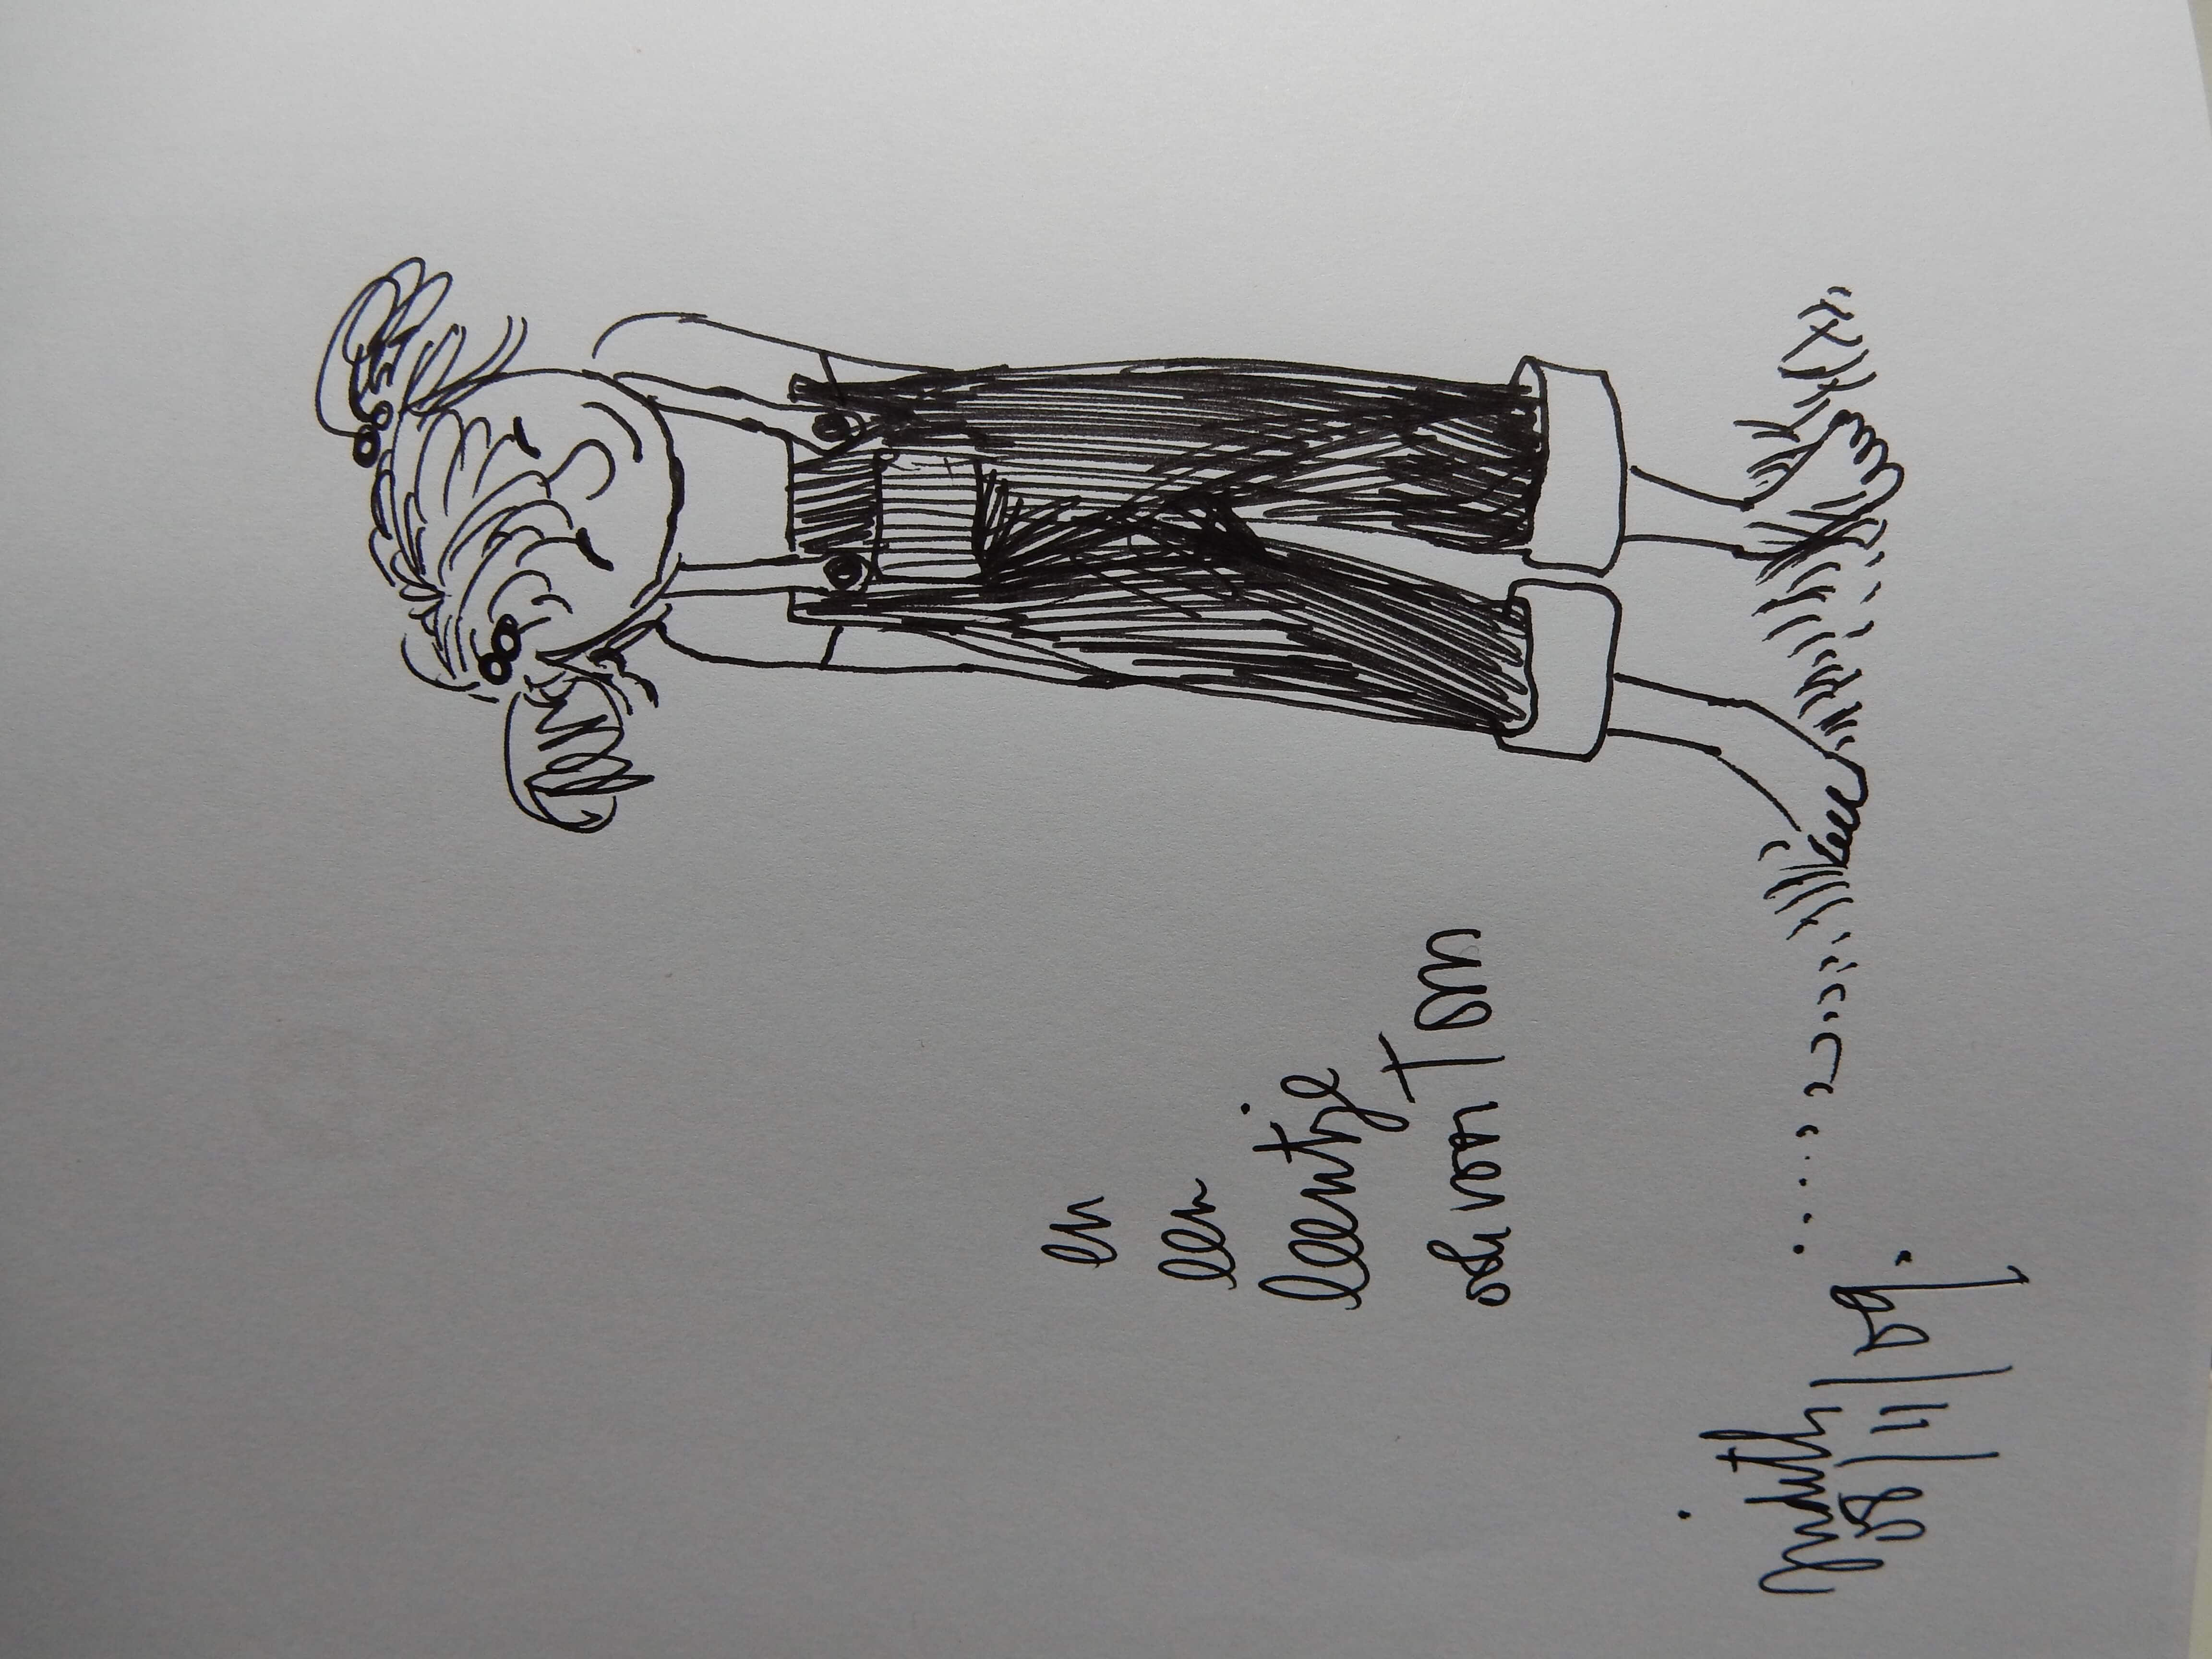 en
een
leentje
ook voor Tom
Judith
08/11/09.